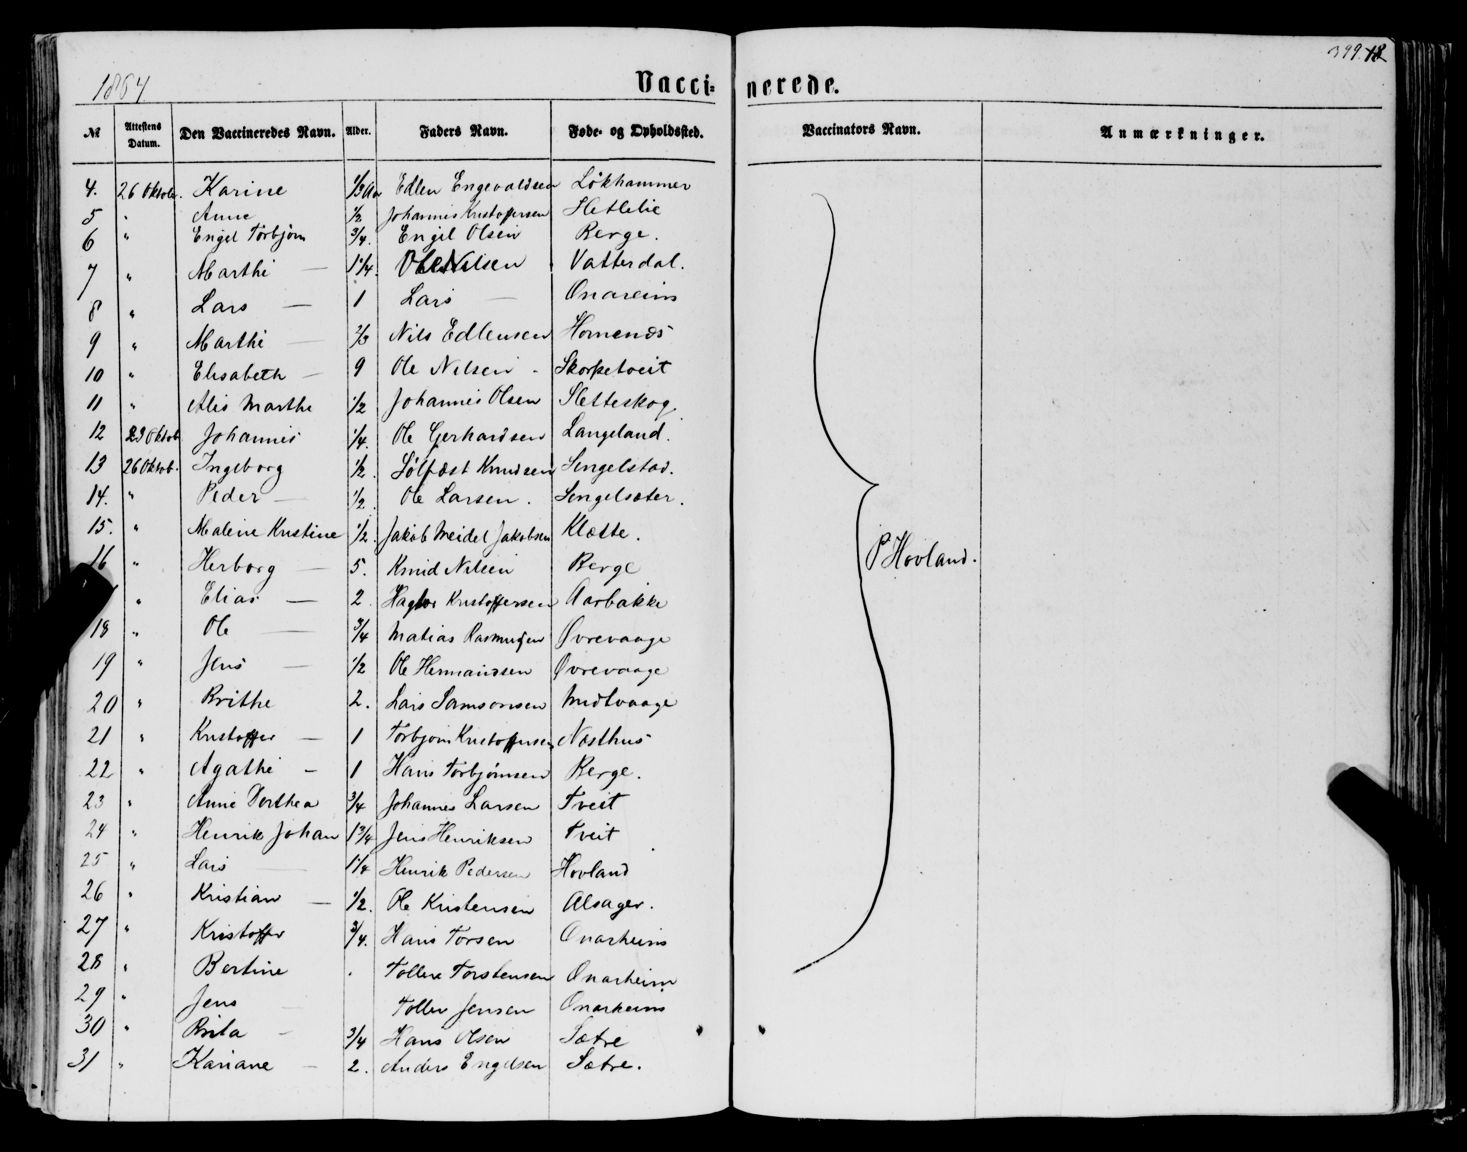 1864
Vacci- nerede.
399. 18
№ Attestens Datum. Den Vaccineredes Navn. Alder. Faders Navn. Føde- og Opholdssted. Vaccinators Navn. Anmærkninger.
4. 26 Oktob. Karine 1/3 Aar Edlen Engevaldsen Løkhammer
5 " Anne 1/2 Johannis Kristoffersen Hetlelie
6 " Engel Torbjørn 3/4. Engel Olsen Berge.
7 " Marthe — 1 1/4. Ole Nilsen Vatterdal.
8 " Lars — 1 Lars — Onareims
9 " Marthe — 2/3 Nils Edlensen Homenæs
10 " Elisabeth — 9 Ole Nilsen - Skorpetveit
11 " Alis Marthe 1/2 Johannes Olsen Sletteskog
12 23 Oktob Johannes 1/4. Ole Gerhardsen Langeland.
13 26 Oktob. Ingeborg 1/2. Sølfæst Knudsen Sengelstad.
14. " Peder — 1/2. Ole Larsen. Sengelsæter.
15. " Malene Kristine 1/2. Jakob Meidel Jakobsen Klætte.
16 " Herborg — 5. Knud Nilsen Berge
" Elias — 2. Kristoffersen Aarbakke
18 " Ole — 3/4 Matias Rasmussen Øvrevaage
19 " Jens — 1/2 Ole Hermandsen Øvrevaage
20 " Brithe 2. Lars Samsonsen Midtvaage
21 " Kristoffer — 1 Torbjørn Kristoffersen Næsthus
22 " Agathe — 1 Hans Torbjørnsen Berge.
23 " Anne Dorthea 3/4 Johannes Larsen Tveit
24 " Henrik Johan 1 3/4 Jens Henriksen Tveit
25 " Lars — 1 1/4 Henrik Pedersen Hovland
26 " Kristian — 1/2. Ole Kristensen Alsager.
27 " Kristoffer 3/4. Hans Torsen Onarheims
28 " Bertine . Tollev Torstensen Onarheim
29 " Jens — Tollev Jensen Onarheims
30 " Brita - 3/4 Hans Olsen Sætre
31 " Kariane — 2. Anders Engelsen Sætre.
P Hovland.